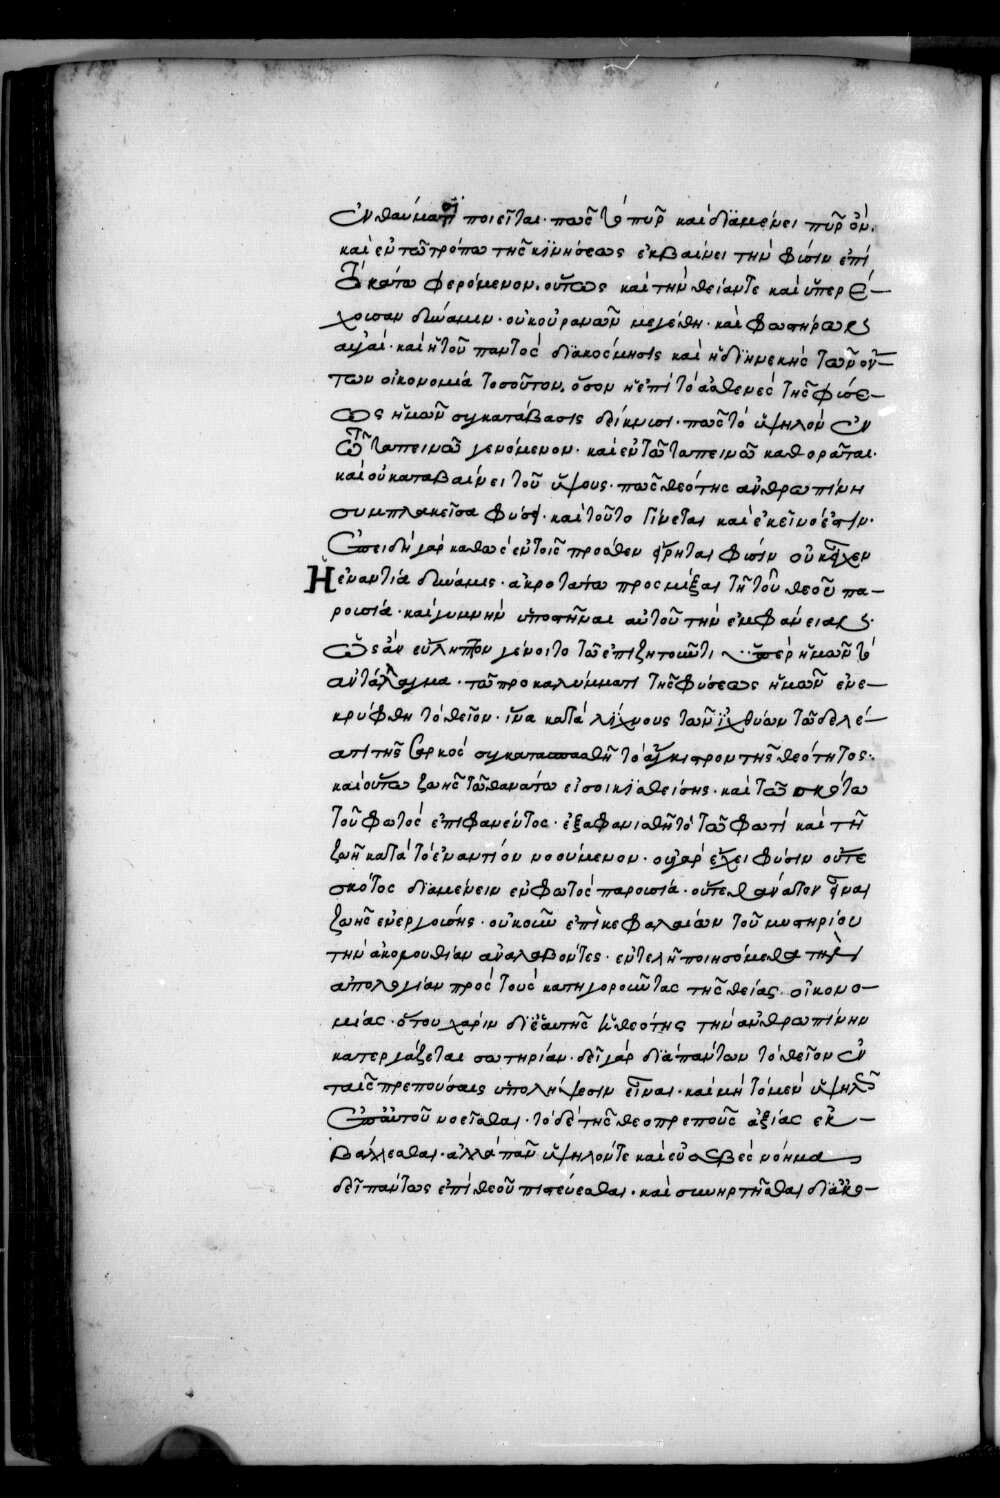 ἐν θαύματι ποιεῖται· πῶς τὸ πῦρ καὶ διαμένει πῦρ ὂν,
καὶ ἐν τῶ τρόπω τῆς κινήσεως ἐκβαίνει τὴν φύσιν ἐπὶ
τὰ κάτω φερόμενον. οὕτως καὶ τὴν θείαν τε καὶ ὑπερέ-
χουσαν δύναμιν· οὐκ οὐρανῶν μεγέθη· καὶ φωστήρων
αὐγαὶ· καὶ ἡ τοῦ παντὸς διακόσμησις καὶ ἡ διηνεκὴς τῶν ὄν-
των οἰκονομία τοσοῦτον, ὅσον ἡ ἐπὶ τὸ ἀσθενὲς τῆς φύσε-
ως ἡμῶν συγκατάβασις δείκνυσι· πῶς τὸ ὑψηλὸν ἐν
τῶ ταπεινῶ γενόμενον· καὶ ἐν τῶ ταπεινῶ καθορᾶται·
καὶ οὐ καταβαίνει τοῦ ὕψους· πῶς θεότης ἀνθρωπίνη
συμπλακεῖσα φύσει· καὶ τοῦτο γίνεται καὶ ἐκεῖνό ἐστιν·
ἐπειδὴ γὰρ καθὼς ἐν τοῖς πρόσθεν εἴρηται φύσιν οὐκ εἶχεν
ἡ ἐναντία δύναμις· ἀκροτάτω προσμίξαι τῆ τοῦ θεοῦ πα-
ρουσία· καὶ γυμνὴν ὑποστῆναι αὐτοῦ τὴν ἐμφάνειαν·
ὡς ἂν εὔληπτον γένοιτο τῶ ἐπιζητοῦντι ὑπὲρ ἡμῶν τὸ
ἀντάλλαγμα· τῶ προκαλύμματι τῆς φύσεως ἡμῶν ἐνε-
κρύφθη τὸ θεῖον· ἵνα κατὰ λίχνους τῶν ἰχθύων τῶ δελέ-
ατι τῆς σαρκὸς συγκατασπασθῆ τὸ ἄγκιστρον τῆς θεότητος·
καὶ οὕτω ζωῆς τῶ θανάτω εἰσοικισθείσης· καὶ τῶ σκότω
τοῦ φωτὸς ἐπιφανέντος· ἐξαφανισθῆ τὸ τῶ φωτὶ καὶ τῆ
ζωῆ κατὰ τὸ ἐναντίον νοούμενον· οὐ γὰρ ἔχει φύσιν οὔτε
σκότος διαμένειν ἐν φωτὸς παρουσία· οὔτε θάνατον εἶναι
ζωῆς ἐνεργούσης· οὐκοῦν ἐπὶ κεφαλαίων τοῦ μυστηρίου
τὴν ἀκολουθίαν ἀναλαβόντες· ἐντελῆ ποιησόμεθα τὴν
ἀπολογίαν πρὸς τοὺς κατηγοροῦντας τῆς θείας οἰκονο-
μίας· ὅτου χάριν δι' ἑαυτῆς ἡ θεότης τὴν ἀνθρωπίνην
κατεργάζεται σωτηρίαν· δεῖ γὰρ διὰ πάντων τὸ θεῖον ἐν
ταῖς πρεπούσαις ὑπολήψεσιν εἶναι· καὶ μὴ τὸ μὲν ὑψηλῶς
ἐπ' αὐτοῦ νοεῖσθαι· τὸ δὲ τῆς θεοπρεποῦς ἀξίας ἐκ-
βάλλεσθαι· ἀλλὰ πᾶν ὑψηλόν τε καὶ εὐσεβὲς νόημα
δεῖ πάντως ἐπὶ θεοῦ πιστεύεσθαι· καὶ συνηρτῆσθαι δι' ἀκο-